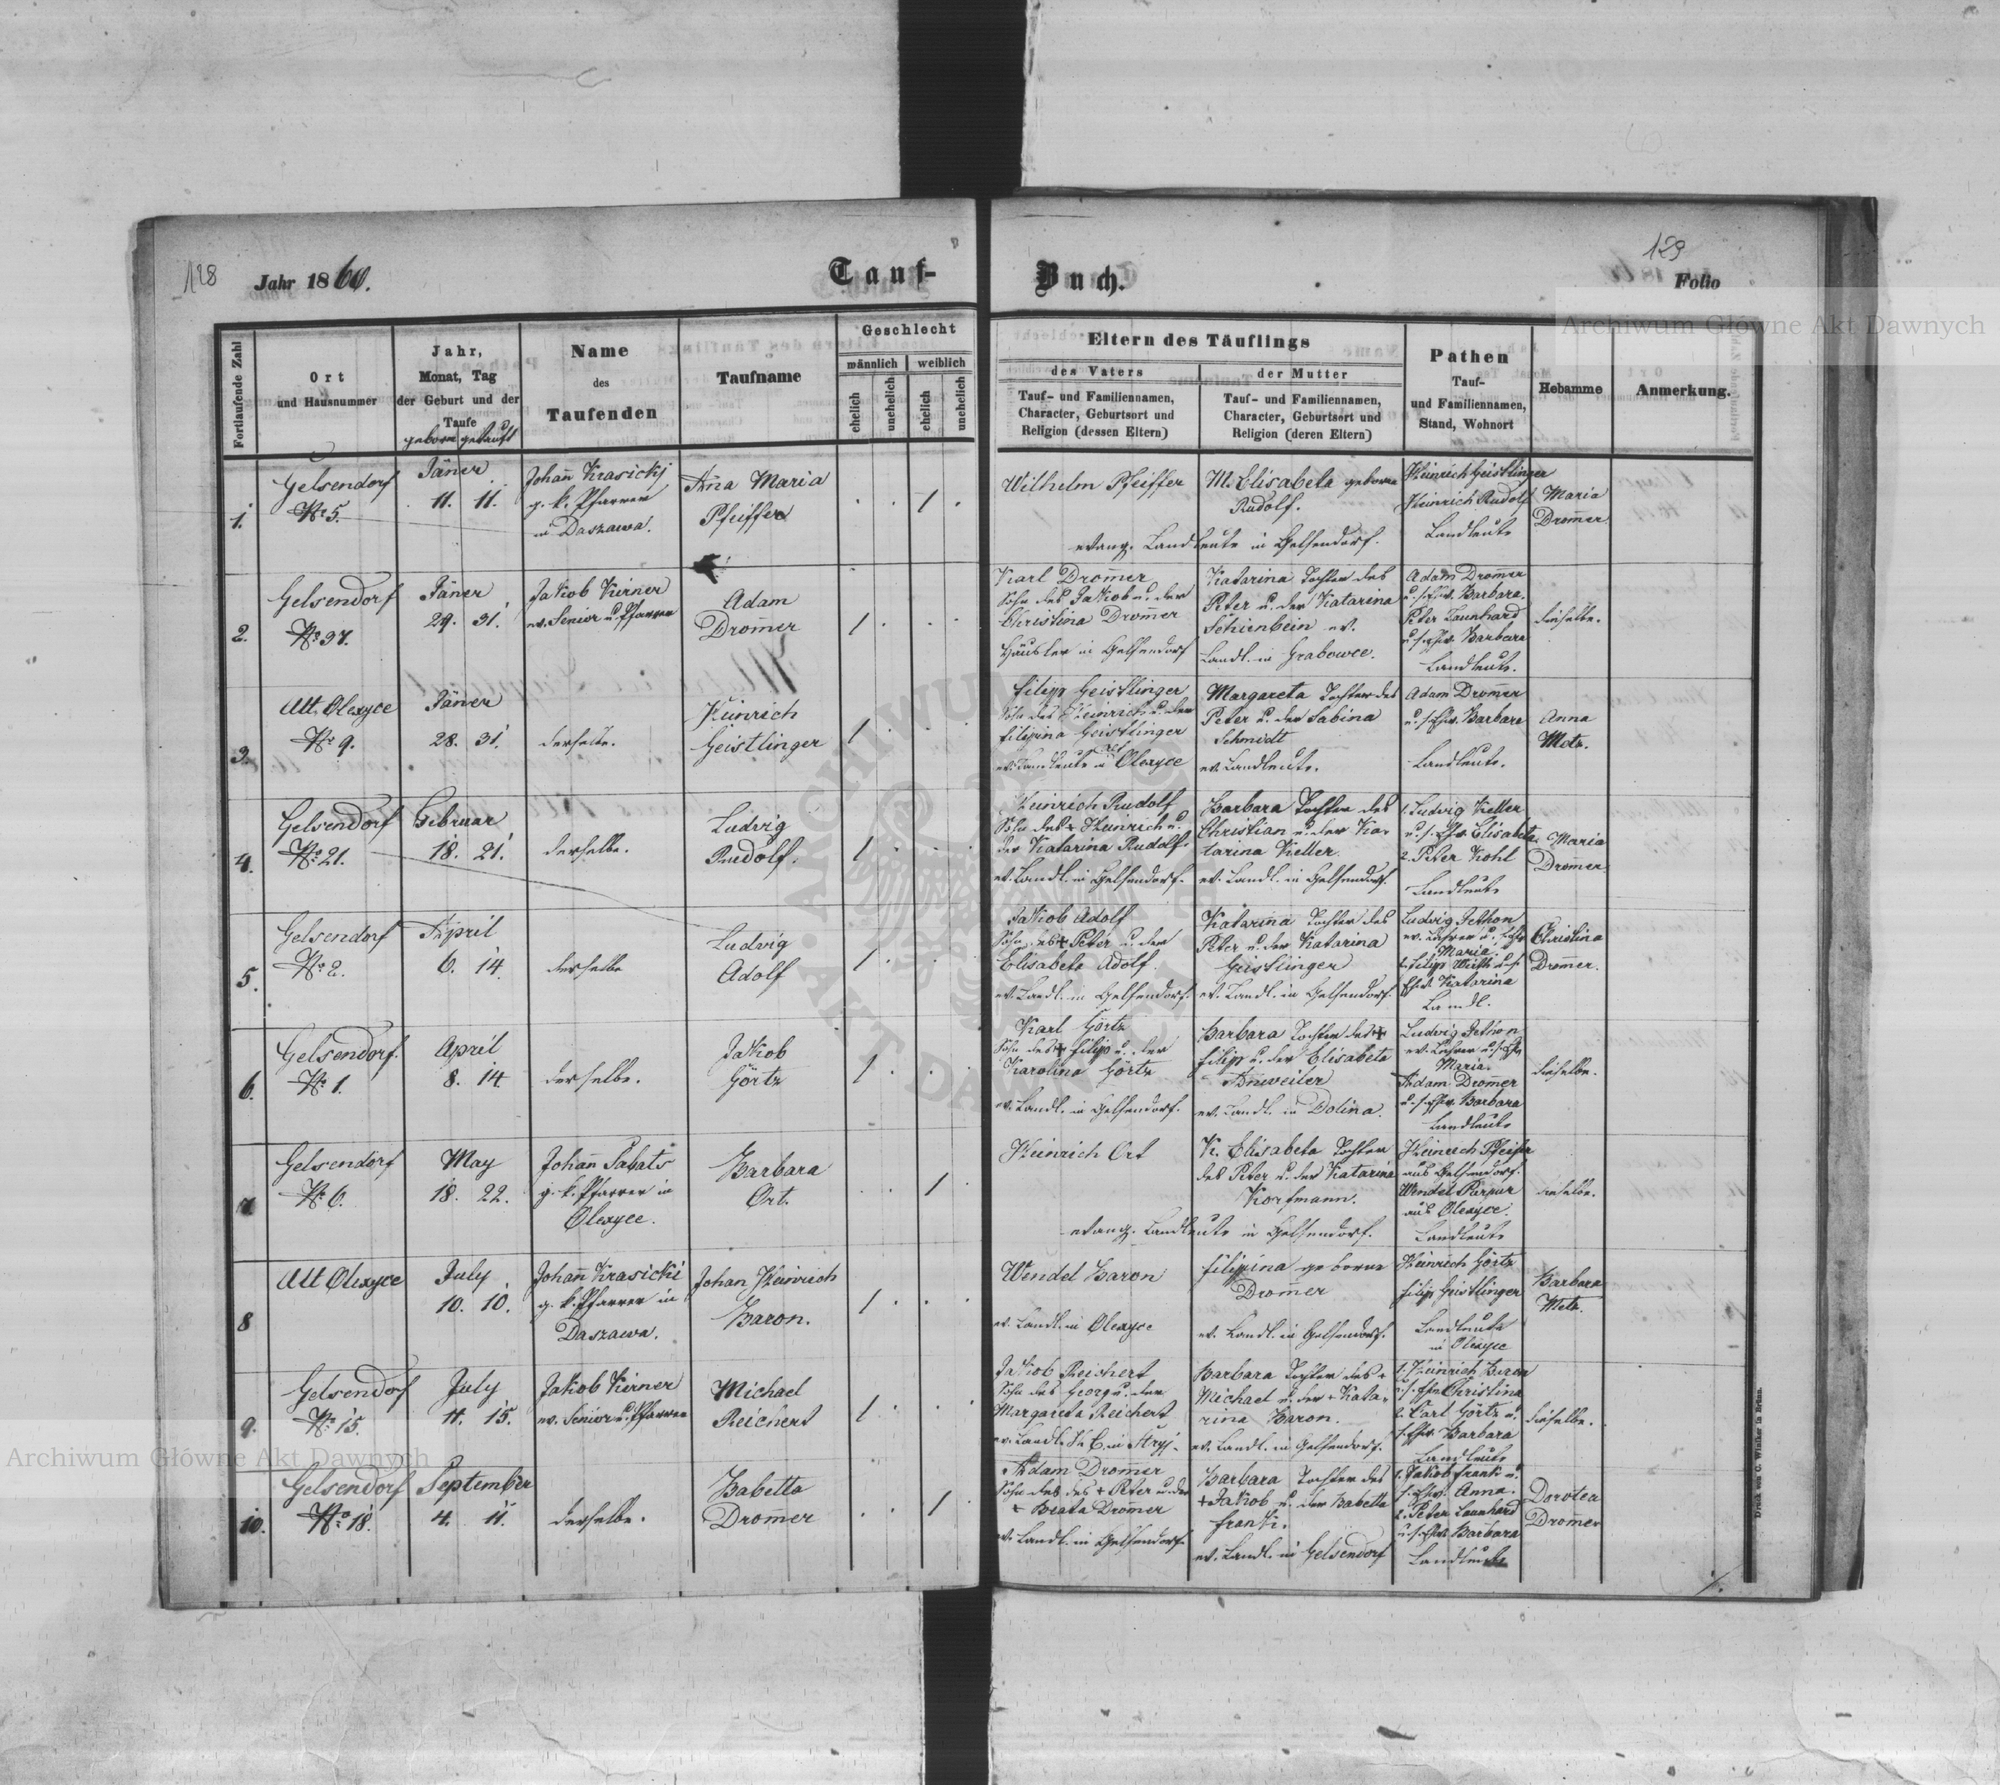 128
Jahr 1860.
Tauf-
Fortlaufende Zahl
Ort
und Hausnummer
Jahr,
Monat, Tag
der Geburt und der
Taufe
geboren getauft
Name
des
Taufenden
Taufname
Geschlecht
männlich
weiblich
ehelich
unehelich
ehelich
unehelich
1.
Gelsendorf
Nro 5.
Jäner
11. 11.
Johañ Krasicki
g. k. Pfarrer
in Daszawa.
Añna Maria
Pfeiffer
1
2.
Gelsendorf
Nro 37.
Jäner
29. 31.
Jakob Kirner
ev. Senior u. Pfarrer
Adam
Drom̃er
1
3.
Alt Olexyce
Nro 9.
Jäner
28. 31.
derselbe.
Heinrich
Geistlinger
1
4.
Gelsendorf
Nro 21.
Februar
18. 21.
derselbe.
Ludwig
Rudolf.
1
5.
Gelsendorf
Nro 2.
April
6. 14.
derselbe
Ludwig
Adolf
1
6.
Gelsendorf.
Nro 1.
April
8. 14.
derselbe.
Jakob
Görtz
1
7
Gelsendorf
Nro 6.
May
18. 22.
Johañ Sabats
g. k. Pfarrer in
Olexyce.
Barbara
Ort.
1
8
Alt Olexyce
July
10. 10.
Johañ Krasicki
g. k. Pfarrer in
Daszawa.
Johan Heinrich
Baron.
1
9.
Gelsendorf
Nro 15.
July
11. 15.
Jakob Kirner
ev. Senior u. Pfarrer
Michael
Reichert
1
10.
Gelsendorf
Nro 18.
September
4. 11.
derselbe.
Babetta
Drom̃er
1
129
Buch.
Folio
Eltern des Täuflings
des Vaters
Tauf- und Familiennamen,
Character, Geburtsort und
Religion (dessen Eltern)
der Mutter
Tauf- und Familiennamen,
Character, Geburtsort und
Religion (deren Eltern)
Pathen
Tauf-
und Familiennamen,
Stand, Wohnort
Hebamme
Anmerkung.
Wilhelm Pfeiffer
M. Elisabeta geborne
Rudolf.
evang. Landleute in Gelsendorf.
Heinrich Geistlinger
Heinrich Rudolf
Landleute
Maria
Drom̃er
Karl Drom̃er
Sohn des Jakob u. der
Christina Drom̃er
Häusler in Gelsendorf
Katarina Tochter des
Peter u. der Katarina
Schienbein ev.
Landl. in Grabowce.
Adam Drom̃er
u. s. Ehw. Barbara.
Peter Launhard
u. s. Ehw. Barbara
Landleute.
dieselbe.
Filip Geistlinger
Sohn des Heinrich u. der
Filipina Geistlinger
ev. Landleute in Olexyce
Margareta Tochter des
Peter u. der Sabina
Schmidt
ev. Landleute.
Adam Drom̃er
u. s. Ehw. Barbara
Landleute.
Anna
Metz.
Heinrich Rudolf
Sohn des + Heinrich u.
der Katarina Rudolf.
ev. Landl. in Gelsendorf.
Barbara Tochter des
Christian u. der Ka-
tarina Keller.
ev. Landl. in Gelsendorf.
1. Ludwig Keller
u. s. Ehw. Elisabeta
2. Peter Kohl
Landleute
Maria
Drom̃er
Jakob Adolf
Sohn des + Peter u. der
Elisabeta Adolf.
ev. Landl. in Gelsendorf.
Katarina Tochter des
Peter u. der Katarina
Geistlinger
ev. Landl. in Gelsendorf
Ludwig Jethon
ev. Lehrer u. s. Ehw
Maria.
2. Filip Weith u. s.
Ehw. Katarina
Landl.
Christina
Drom̃er.
Karl Görtz
Sohn des + Filip u. der
Karolina Görtz
ev. Landl. in Gelsendorf.
Barbara Tochter des +
Filip u. der Elisabeta
Anweiler
ev. Landl. in Dolina.
Ludwig Jethon
ev. Lehrer u. s. Ehw
Maria.
Adam Drom̃er
u. s. Ehw. Barbara
Landleute
dieselbe.
Heinrich Ort
K. Elisabeta Tochter
des Peter u. der Katarina
Korfmann.
evang. Landleute in Gelsendorf.
Heinrich Pfeiffer
aus Gelsendorf.
Wendel Purpur
aus Olexyce.
Landleute
dieselbe.
Wendel Baron
ev. Landl. in Olexyce
Filipina geborne
Drom̃er
ev. Landl. in Gelsendorf.
Heinrich Görtz
Filip Geistlinger
Landleute
in Olexyce
Barbara
Metz.
Jakob Reichert
Sohn des Georg u. der
Margareta Reichert
ev. Landl. in Stryj.
Barbara Tochter des +
Michael u. der + Kata-
rina Baron.
ev. Landl. in Gelsendorf.
1. Heinrich Baron
u. s. Ehw. Christina
2. Carl Görtz u.
s. Ehw. Barbara
Landleute
dieselbe.
Adam Drom̃er
Sohn des des + Peter u. der
+ Beata Drom̃er
ev. Landl. in Gelsendorf.
Barbara Tochter des
+ Jakob u. der Babetta
Frank.
ev. Landl. in Gelsendorf
1. Jakob Frank u.
s. Ehw. Anna.
2. Peter Launhard
u. s. Ehw. Barbara
Landleute
Dorotea
Drom̃er
Druck von C. Winiker in Brünn.
Archiwum Główne Akt Dawnych
Archiwum Główne Akt Dawnych